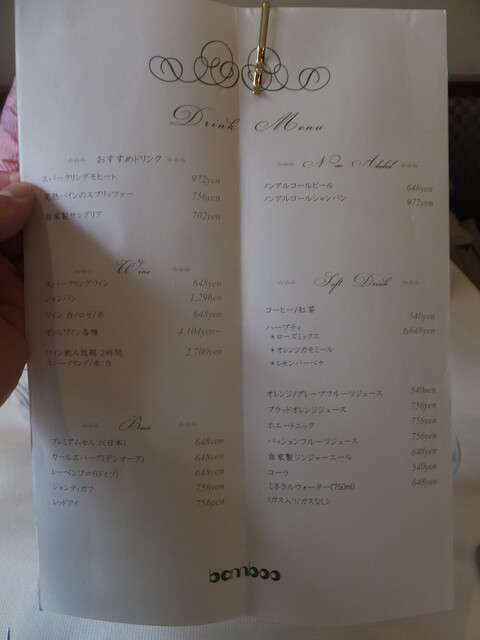 Drink Menu
おすすめドリンク
スパークリングモヒート 972yen
完熟パインのスプリッツァー 756yen
自家製サングリア 702yen
Wine
スパークリングワイン 648yen
シャンパン 1,296en
ワイン 白/ロゼ/赤 648yen
ボトルワイン各種 4,104yen~
ワイン飲み放題 2時間 2,700yen
スパークリング/赤/白
Beer
プレミアムモルツ(日本) 648yen
カールズバーグ(デンマーク) 648yen
レーベンブロイ(ドイツ) 648yen
シャンディガフ 756yen
レッドアイ 756yen
Non Alcohol
ノンアルコールビール 648yen
ノンアルコールシャンパン 972yen
Soft Drink
コーヒー/紅茶 540yen
ハーブティ 648yen
*ローズミックス
*オレンジカモミール
*レモンバーベナ
オレンジ/グレープフルーツジュース 540yen
ブラッドオレンジジュース 756yen
ホエートニック 756yen
パッションフルーツジュース 756yen
自家製ジンジャーエール 648yen
コーラ 540yen
ミネラルウォーター(750ml) 648yen
(ガス入り/ガスなし)
bamboo